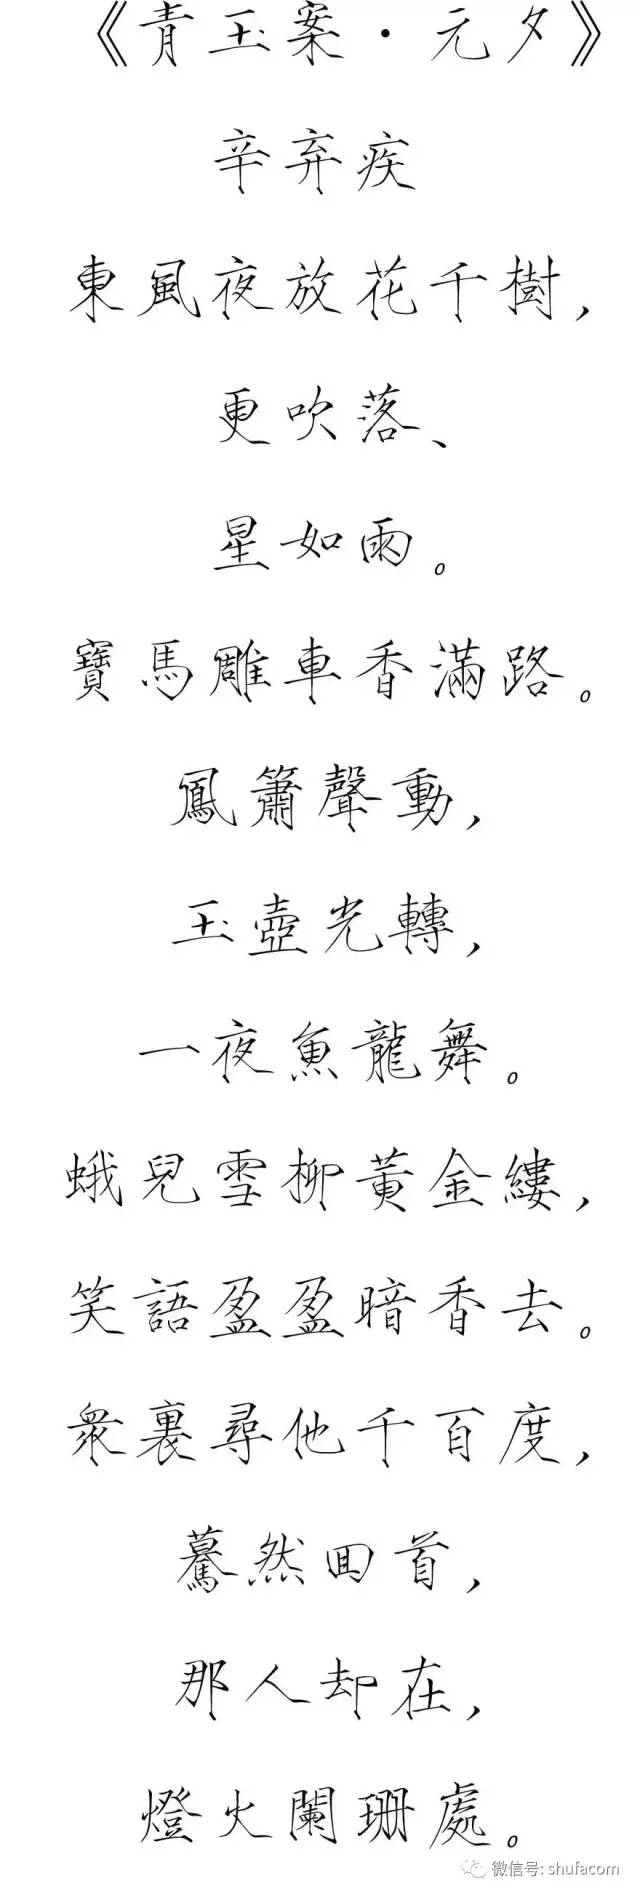 《青玉案·元夕》
辛弃疾
東風夜放花千樹，
更吹落、
星如雨。
寶馬雕車香滿路。
鳳簫聲動，
玉壺光轉，
一夜魚龍舞。
蛾兒雪柳黃金縷，
笑語盈盈暗香去。
衆裏尋他千百度，
驀然回首，
那人却在，
燈火闌珊處。
微信号: shufacom